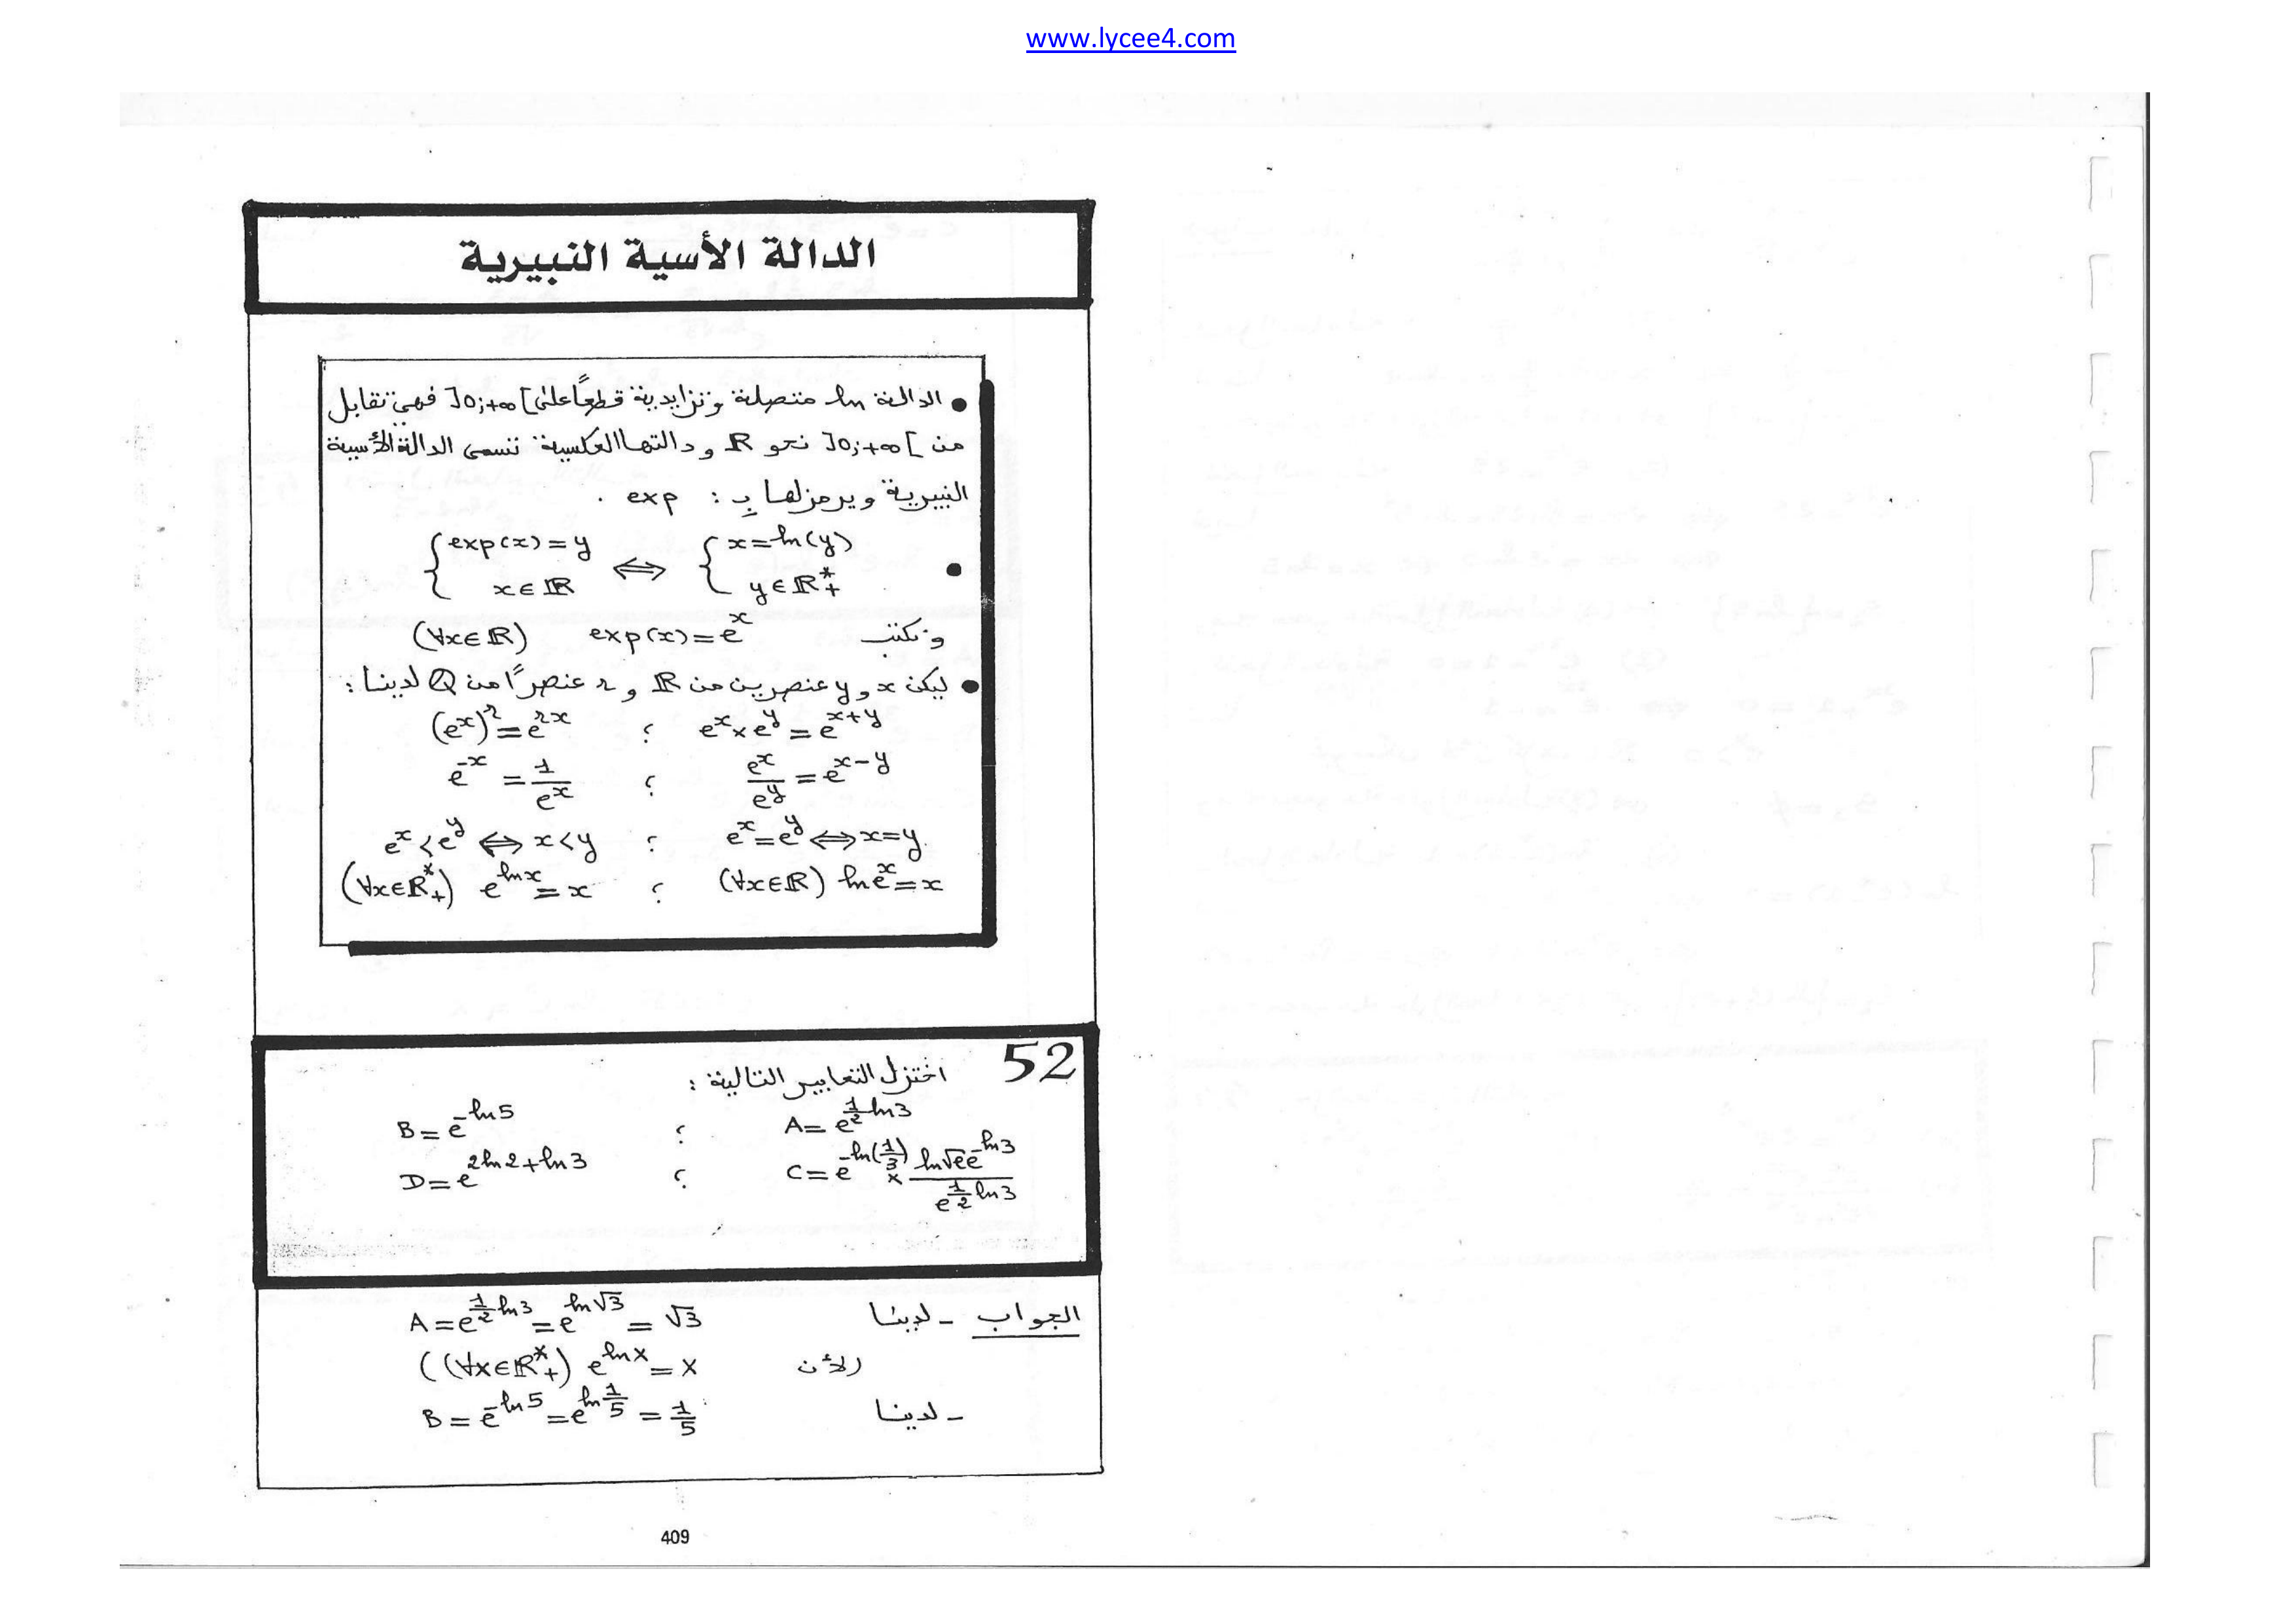 www.lycee4.com
الدالة الأسية النبيرية
• الدالة ln متصلة وتزايدية قطعًا على ]0;+∞[ فهي تقابل
من ]0;+∞[ نحو ℝ ودالتها العكسية تسمى الدالة الأسية
النبيرية ويرمز لها بِ : exp .
• { exp(x)=y x∈ℝ ⟺ { x=ln(y) y∈ℝ*₊
ونكتب exp(x)=e^x (∀x∈ℝ)
• ليكن x و y عنصرين من ℝ و r عنصرًا من ℚ لدينا :
e^x × e^y = e^(x+y) ؛ (e^x)^r = e^(rx)
e^x/e^y = e^(x-y) ؛ e^(-x) = 1/e^x
e^x = e^y ⟺ x=y ؛ e^x < e^y ⟺ x<y
(∀x∈ℝ) ln e^x = x ؛ (∀x∈ℝ*₊) e^(ln x) = x
52 اختزل التعابير التالية :
A = e^(1/2 ln3) ؛ B = e^(-ln5)
C = e^(-ln(1/3)) × (ln√e e^(-ln3))/(e^(1/2 ln3)) ؛ D = e^(2ln2+ln3)
الجواب - لدينا A = e^(1/2 ln3) = e^(ln√3) = √3
(لأن ((∀x∈ℝ*₊) e^(ln x) = x
- لدينا B = e^(-ln5) = e^(ln 1/5) = 1/5
409